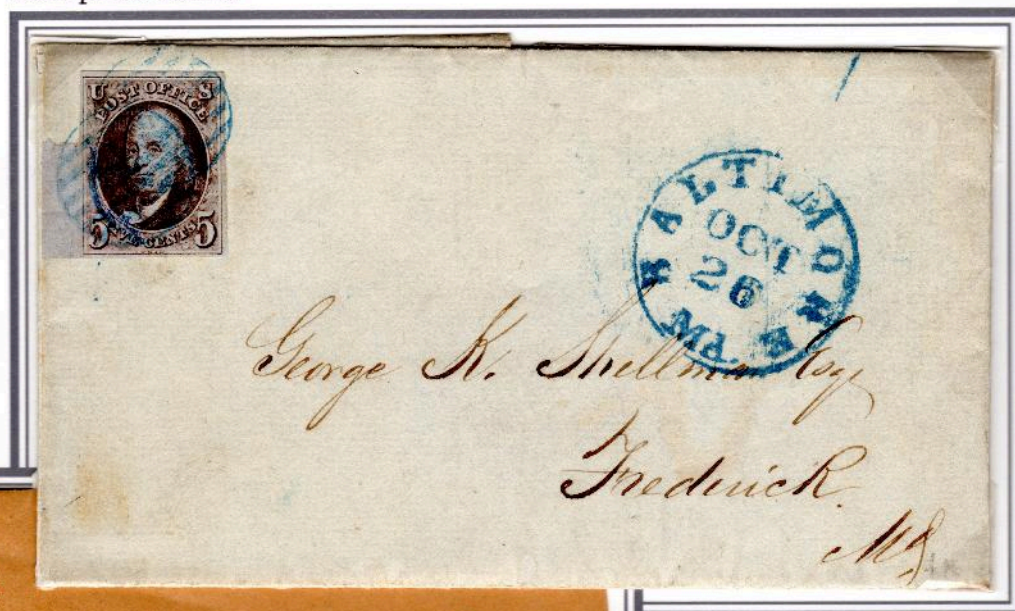 U S
POST OFFICE
5 FIVE CENTS 5
BALTIMORE Md.
OCT
26
George K. Shellman Esqr
Frederick
Md